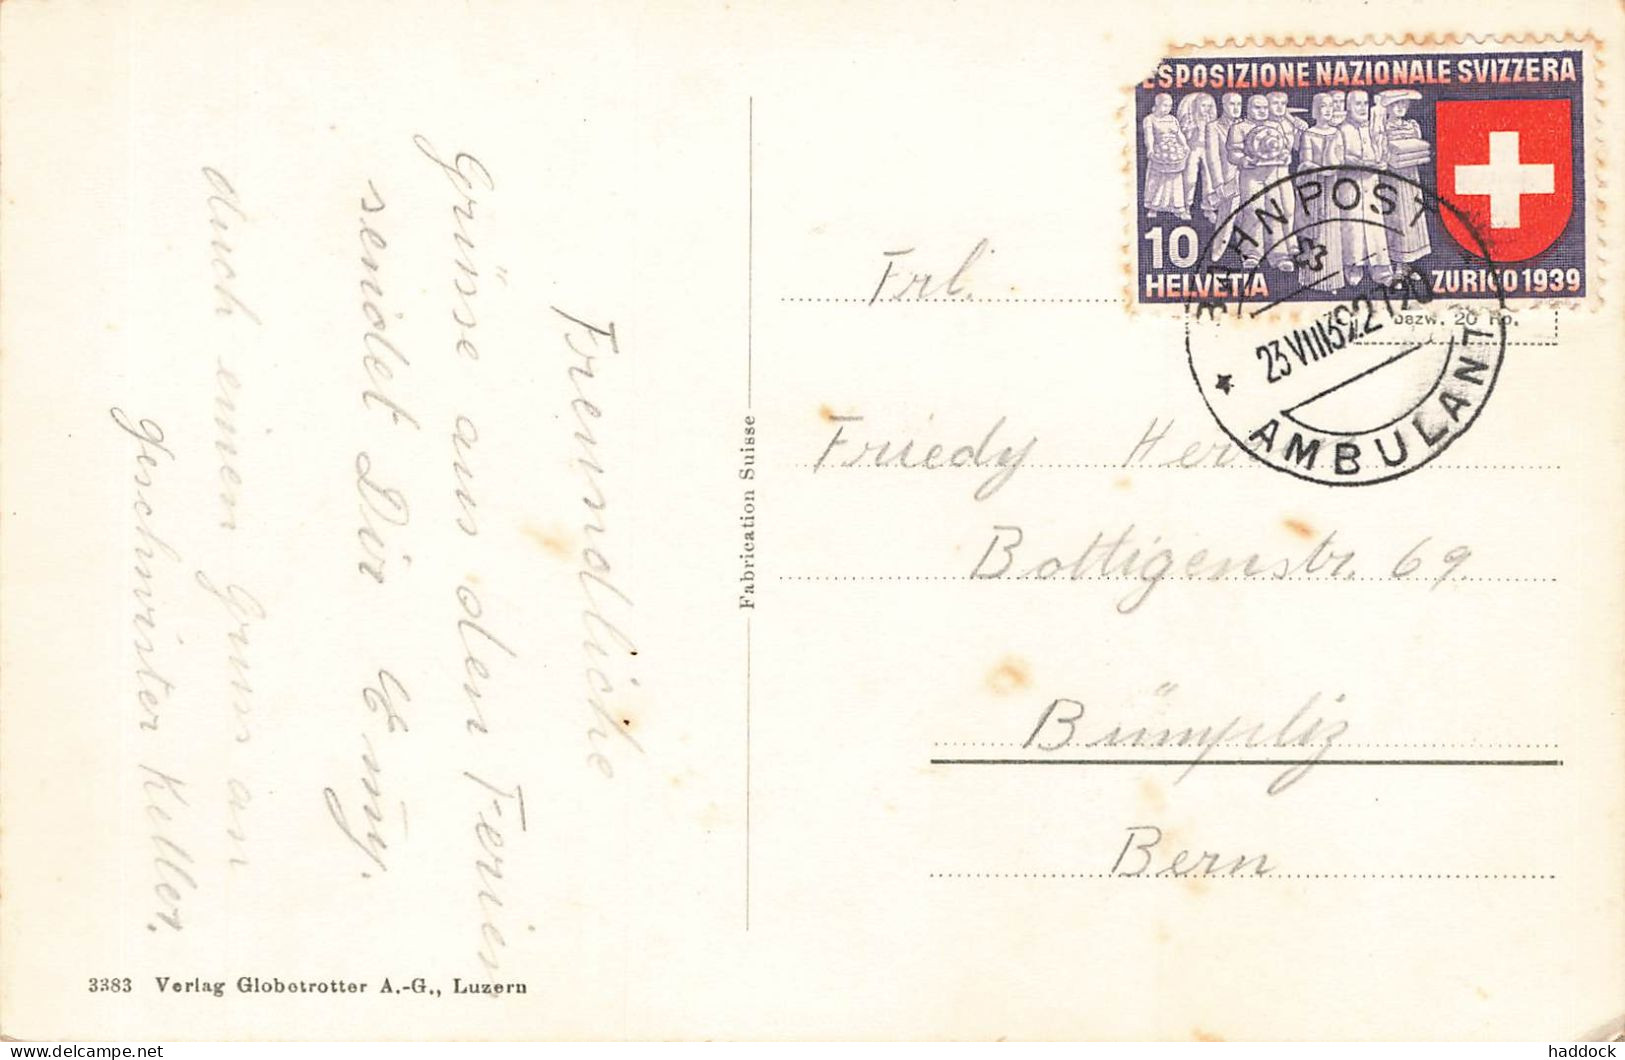 Freundliche
Grüsse aus den Ferien
sendet Dir
auch einen Gruss an
Geschwister Keller.
3383 Verlag Globetrotter A.-G., Luzern
Fabrication Suisse
ESPOSIZIONE NAZIONALE SVIZZERA
10
HELVETIA
ZURIGO 1939
BAHNPOST
23
23 VIII 39
AMBULANT
bezw. 20 Rp.
Frl.
Friedy
Bottigenstr. 69.
Bümpliz
Bern
haddock